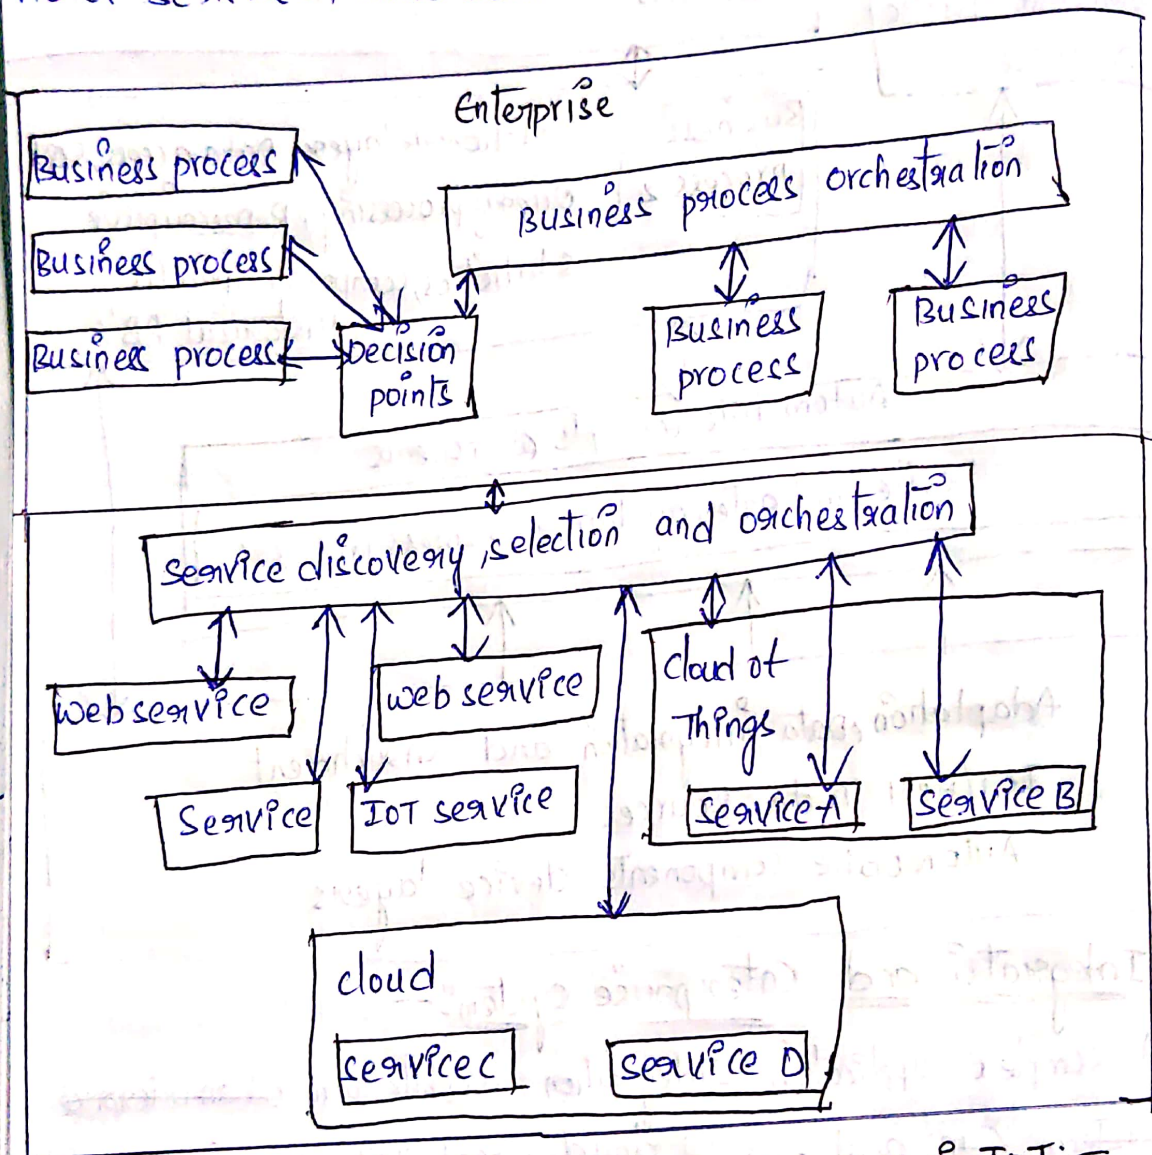 Enterprise
Business process
Business process orchestration
Business process
Business process
Decision
points
Business
process
Business
process
Service discovery, selection and orchestration
web service
web service
Service
IOT service
Cloud of
Things
Service A
Service B
cloud
service C
service D